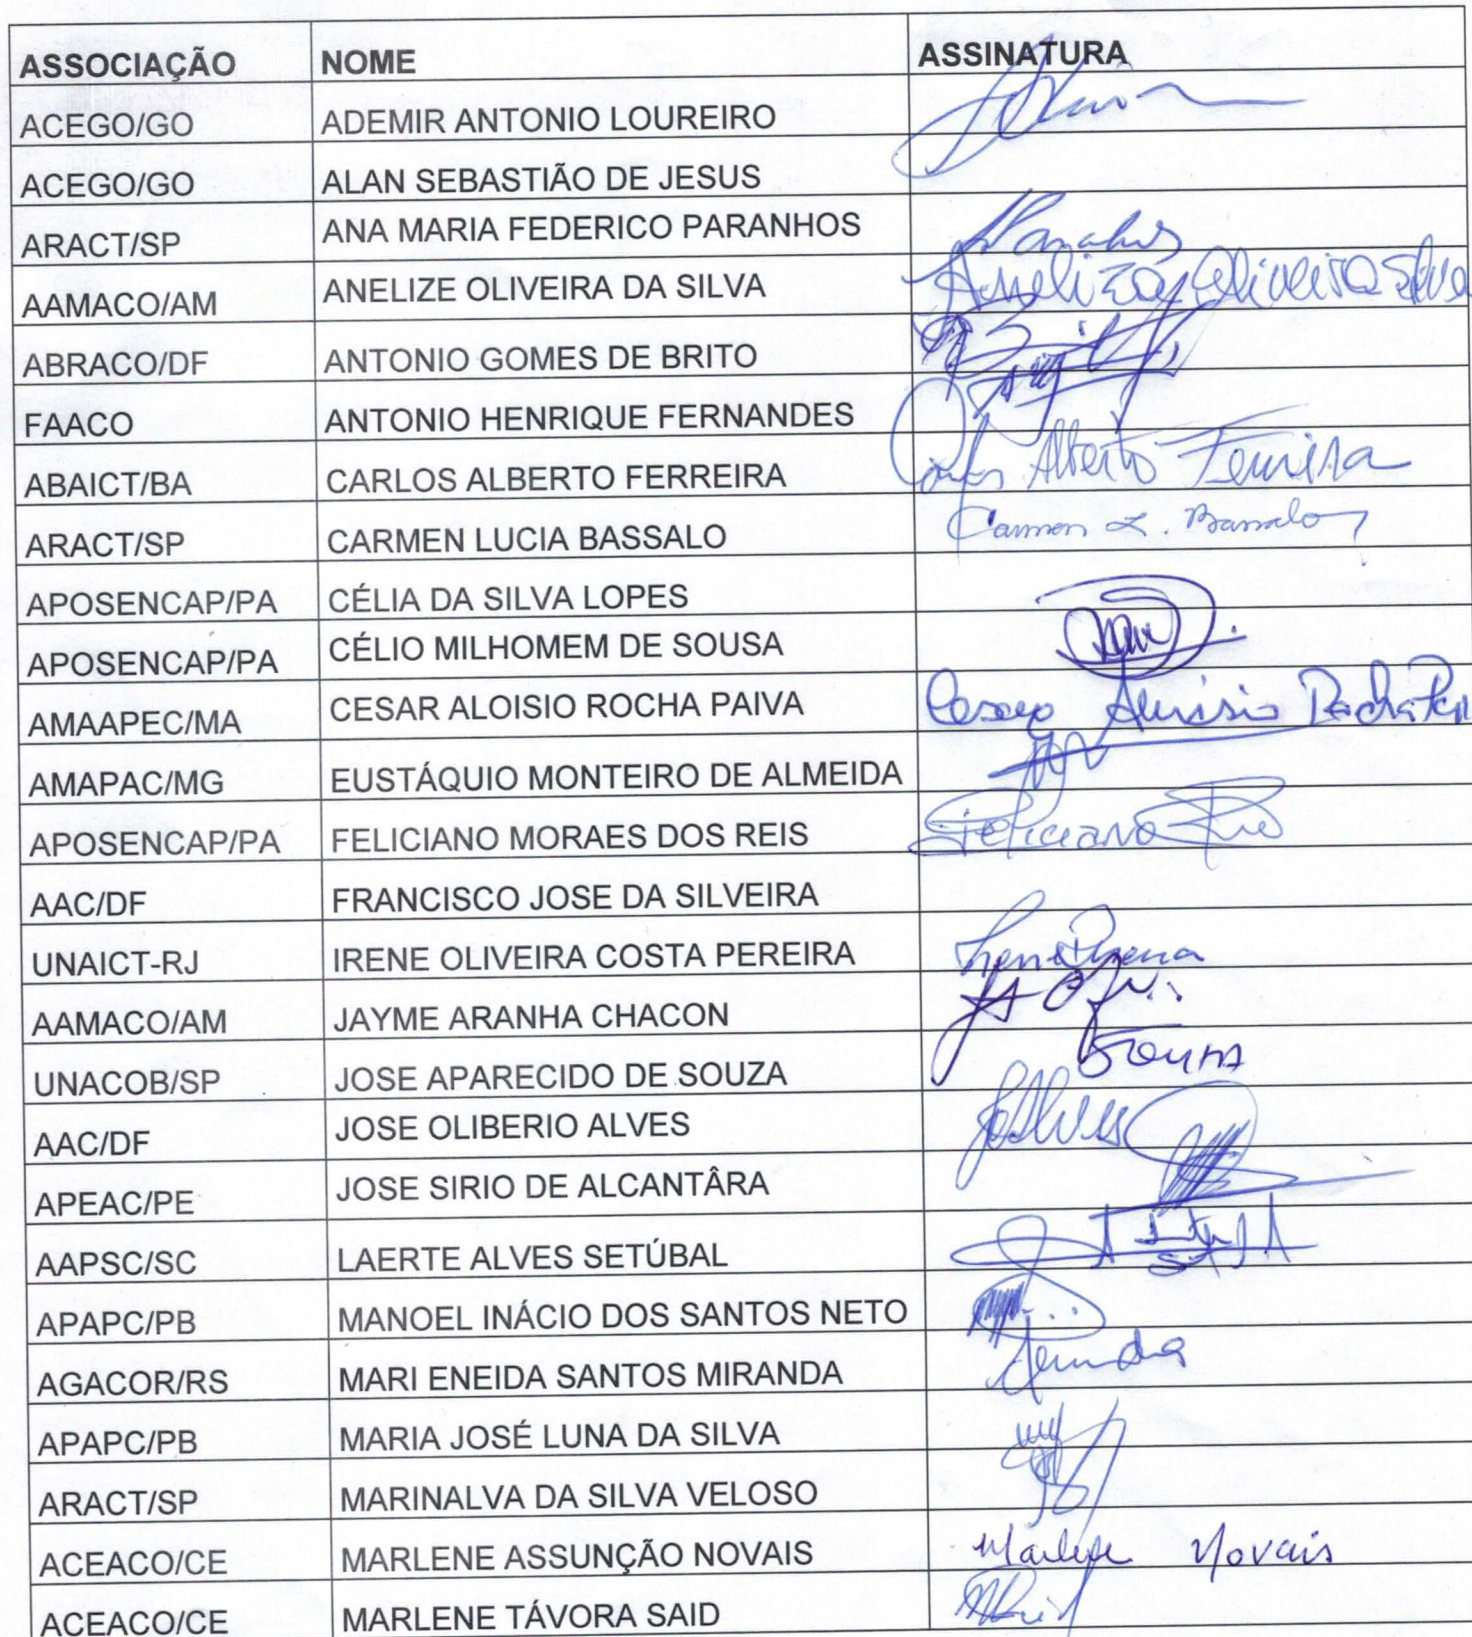 ASSOCIAÇÃO NOME ASSINATURA
ACEGO/GO ADEMIR ANTONIO LOUREIRO
ACEGO/GO ALAN SEBASTIÃO DE JESUS
ARACT/SP ANA MARIA FEDERICO PARANHOS Paranhos
AAMACO/AM ANELIZE OLIVEIRA DA SILVA Anelize Oliveira Silva
ABRACO/DF ANTONIO GOMES DE BRITO
FAACO ANTONIO HENRIQUE FERNANDES
ABAICT/BA CARLOS ALBERTO FERREIRA Carlos Alberto Ferreira
ARACT/SP CARMEN LUCIA BASSALO Carmen L. Bassalo
APOSENCAP/PA CÉLIA DA SILVA LOPES
APOSENCAP/PA CÉLIO MILHOMEM DE SOUSA
AMAAPEC/MA CESAR ALOISIO ROCHA PAIVA Rocha
AMAPAC/MG EUSTÁQUIO MONTEIRO DE ALMEIDA
APOSENCAP/PA FELICIANO MORAES DOS REIS Feliciano
AAC/DF FRANCISCO JOSE DA SILVEIRA
UNAICT-RJ IRENE OLIVEIRA COSTA PEREIRA Irene Pereira
AAMACO/AM JAYME ARANHA CHACON
UNACOB/SP JOSE APARECIDO DE SOUZA Souza
AAC/DF JOSE OLIBERIO ALVES JoAlves
APEAC/PE JOSE SIRIO DE ALCANTÂRA
AAPSC/SC LAERTE ALVES SETÚBAL
APAPC/PB MANOEL INÁCIO DOS SANTOS NETO
AGACOR/RS MARI ENEIDA SANTOS MIRANDA
APAPC/PB MARIA JOSÉ LUNA DA SILVA
ARACT/SP MARINALVA DA SILVA VELOSO
ACEACO/CE MARLENE ASSUNÇÃO NOVAIS Marlene Novais
ACEACO/CE MARLENE TÁVORA SAID